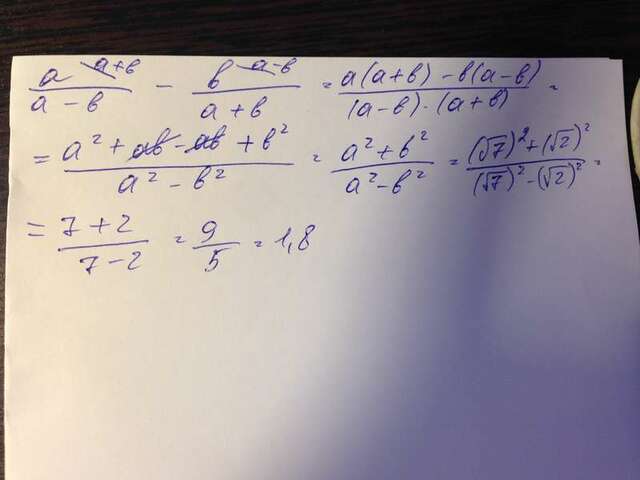 a a+b / a-b - b a-b / a+b = a(a+b) - b(a-b) / (a-b)·(a+b) =
= a² + ab - ab + b² / a² - b² = a² + b² / a² - b² = (√7)² + (√2)² / (√7)² - (√2)² =
= 7+2 / 7-2 = 9 / 5 = 1,8